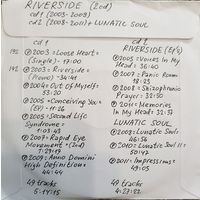 RIVERSIDE (2cd)
cd1 (2003-2009)
cd2 (2008-2011) + LUNATIC SOUL
cd1
192 ℗2003 = Loose Heart = (Single) - 17:00
192 ℗2003 = Riverside = (Promo) - 34:41
℗2004 = Out Of Myself - 53:20
℗2005 = Conceiving You = (EP) - 11:26
℗2005 = Second Life Syndrome = 1:03:43
℗2007 = Rapid Eye Movement = (2cd) 1:29:19
℗2009 = Anno Domini High Definition = 44:44
49 tracks
5:14:15
cd2
RIVERSIDE (Ep's)
℗2005 = Voices In My Head = 36:40
℗2007 = Panic Room 18:23
℗2008 = Schizophrenic Prayer = 32:50
℗2011 = Memories In My Head = 32:37
LUNATIC SOUL
℗2008 = Lunatic Soul 46:56
℗2010 = Lunatic Soul II 50:47
℗2011 = Impressions = 49:05
49 tracks
4:27:22